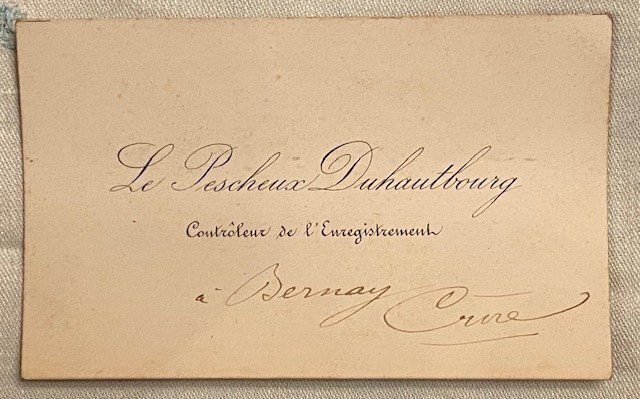 Le Pescheux Duhautbourg
Contrôleur de l'Enregistrement
à Bernay
Eure